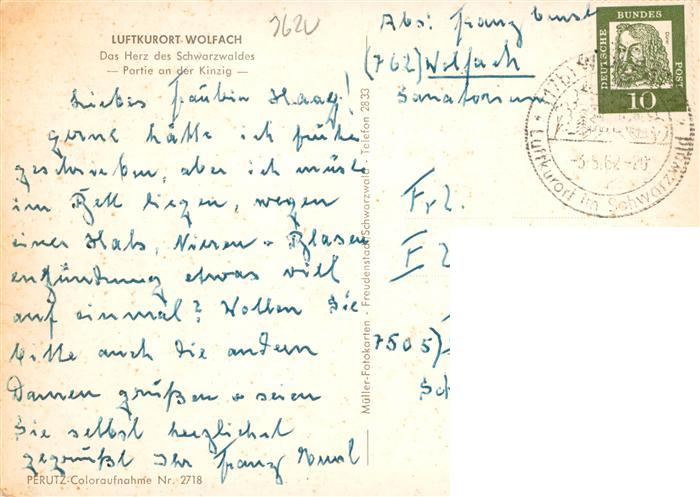 3620
LUFTKURORT WOLFACH
Das Herz des Schwarzwaldes
— Partie an der Kinzig —
Liebes Fräulein Haag!
gerne hätte ich früher
geschrieben, aber ich müste
im Bett liegen, wegen
einer Hals, Nieren - Blasen
entzündung etwas viel
auf einmal? Wollen Sie
bitte auch die andern
Damen grüßen u seien
Sie selbst herzlichst
gegrüßt Ihr Franz
PERUTZ-Coloraufnahme Nr. 2718
Müller-Fotokarten - Freudenstadt/Schwarzwald - Telefon 2833
Abs: Franz
(762) Wolfach
Sanatorium
DEUTSCHE BUNDESPOST
Dürer
10
-3.5.62-20
Luftkurort im Schwarzwald
Frl.
7505)